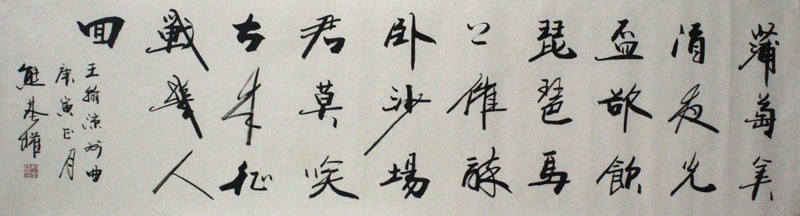 蒲萄美
酒夜光
盃欲飲
琵琶馬
上催醉
卧沙場
君莫笑
古来征
戰幾人
回
王翰涼州曲
庚寅正月
熊基